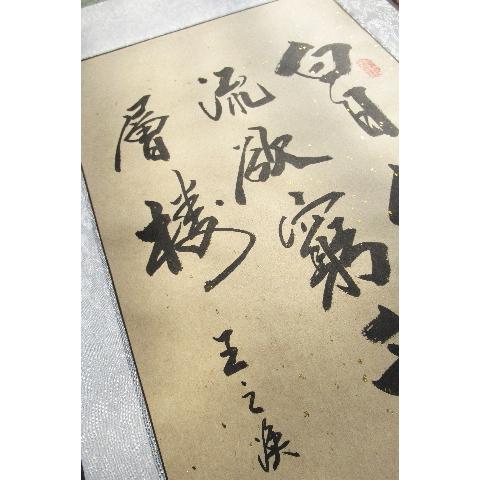 白日
流欲窮
層樓
王之渙